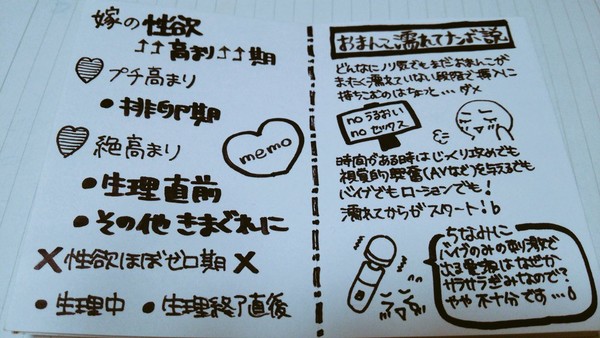 嫁の性欲
↑↑高まり↑↑期
プチ高まり
●排卵期
絶高まり
●生理直前
●その他きまぐれに
✕性欲ほぼゼロ期✕
●生理中 ●生理終了直後
memo
おまんこ濡れてナンボ説
どんなにノリ気でもまだおまんこが
まったく濡れていない段階で挿入に
持ちこむのはちょっと…ダメ
noうるおい
noセックス
時間がある時はじっくり攻めでも
視覚的興奮(AVなど)を与えるでも
バイブでもローションでも!
濡れてからがスタート!
ちなみに
バイブのみの刺激で
出る愛液はなぜか
サラサラぎみなので?
やや不十分です…